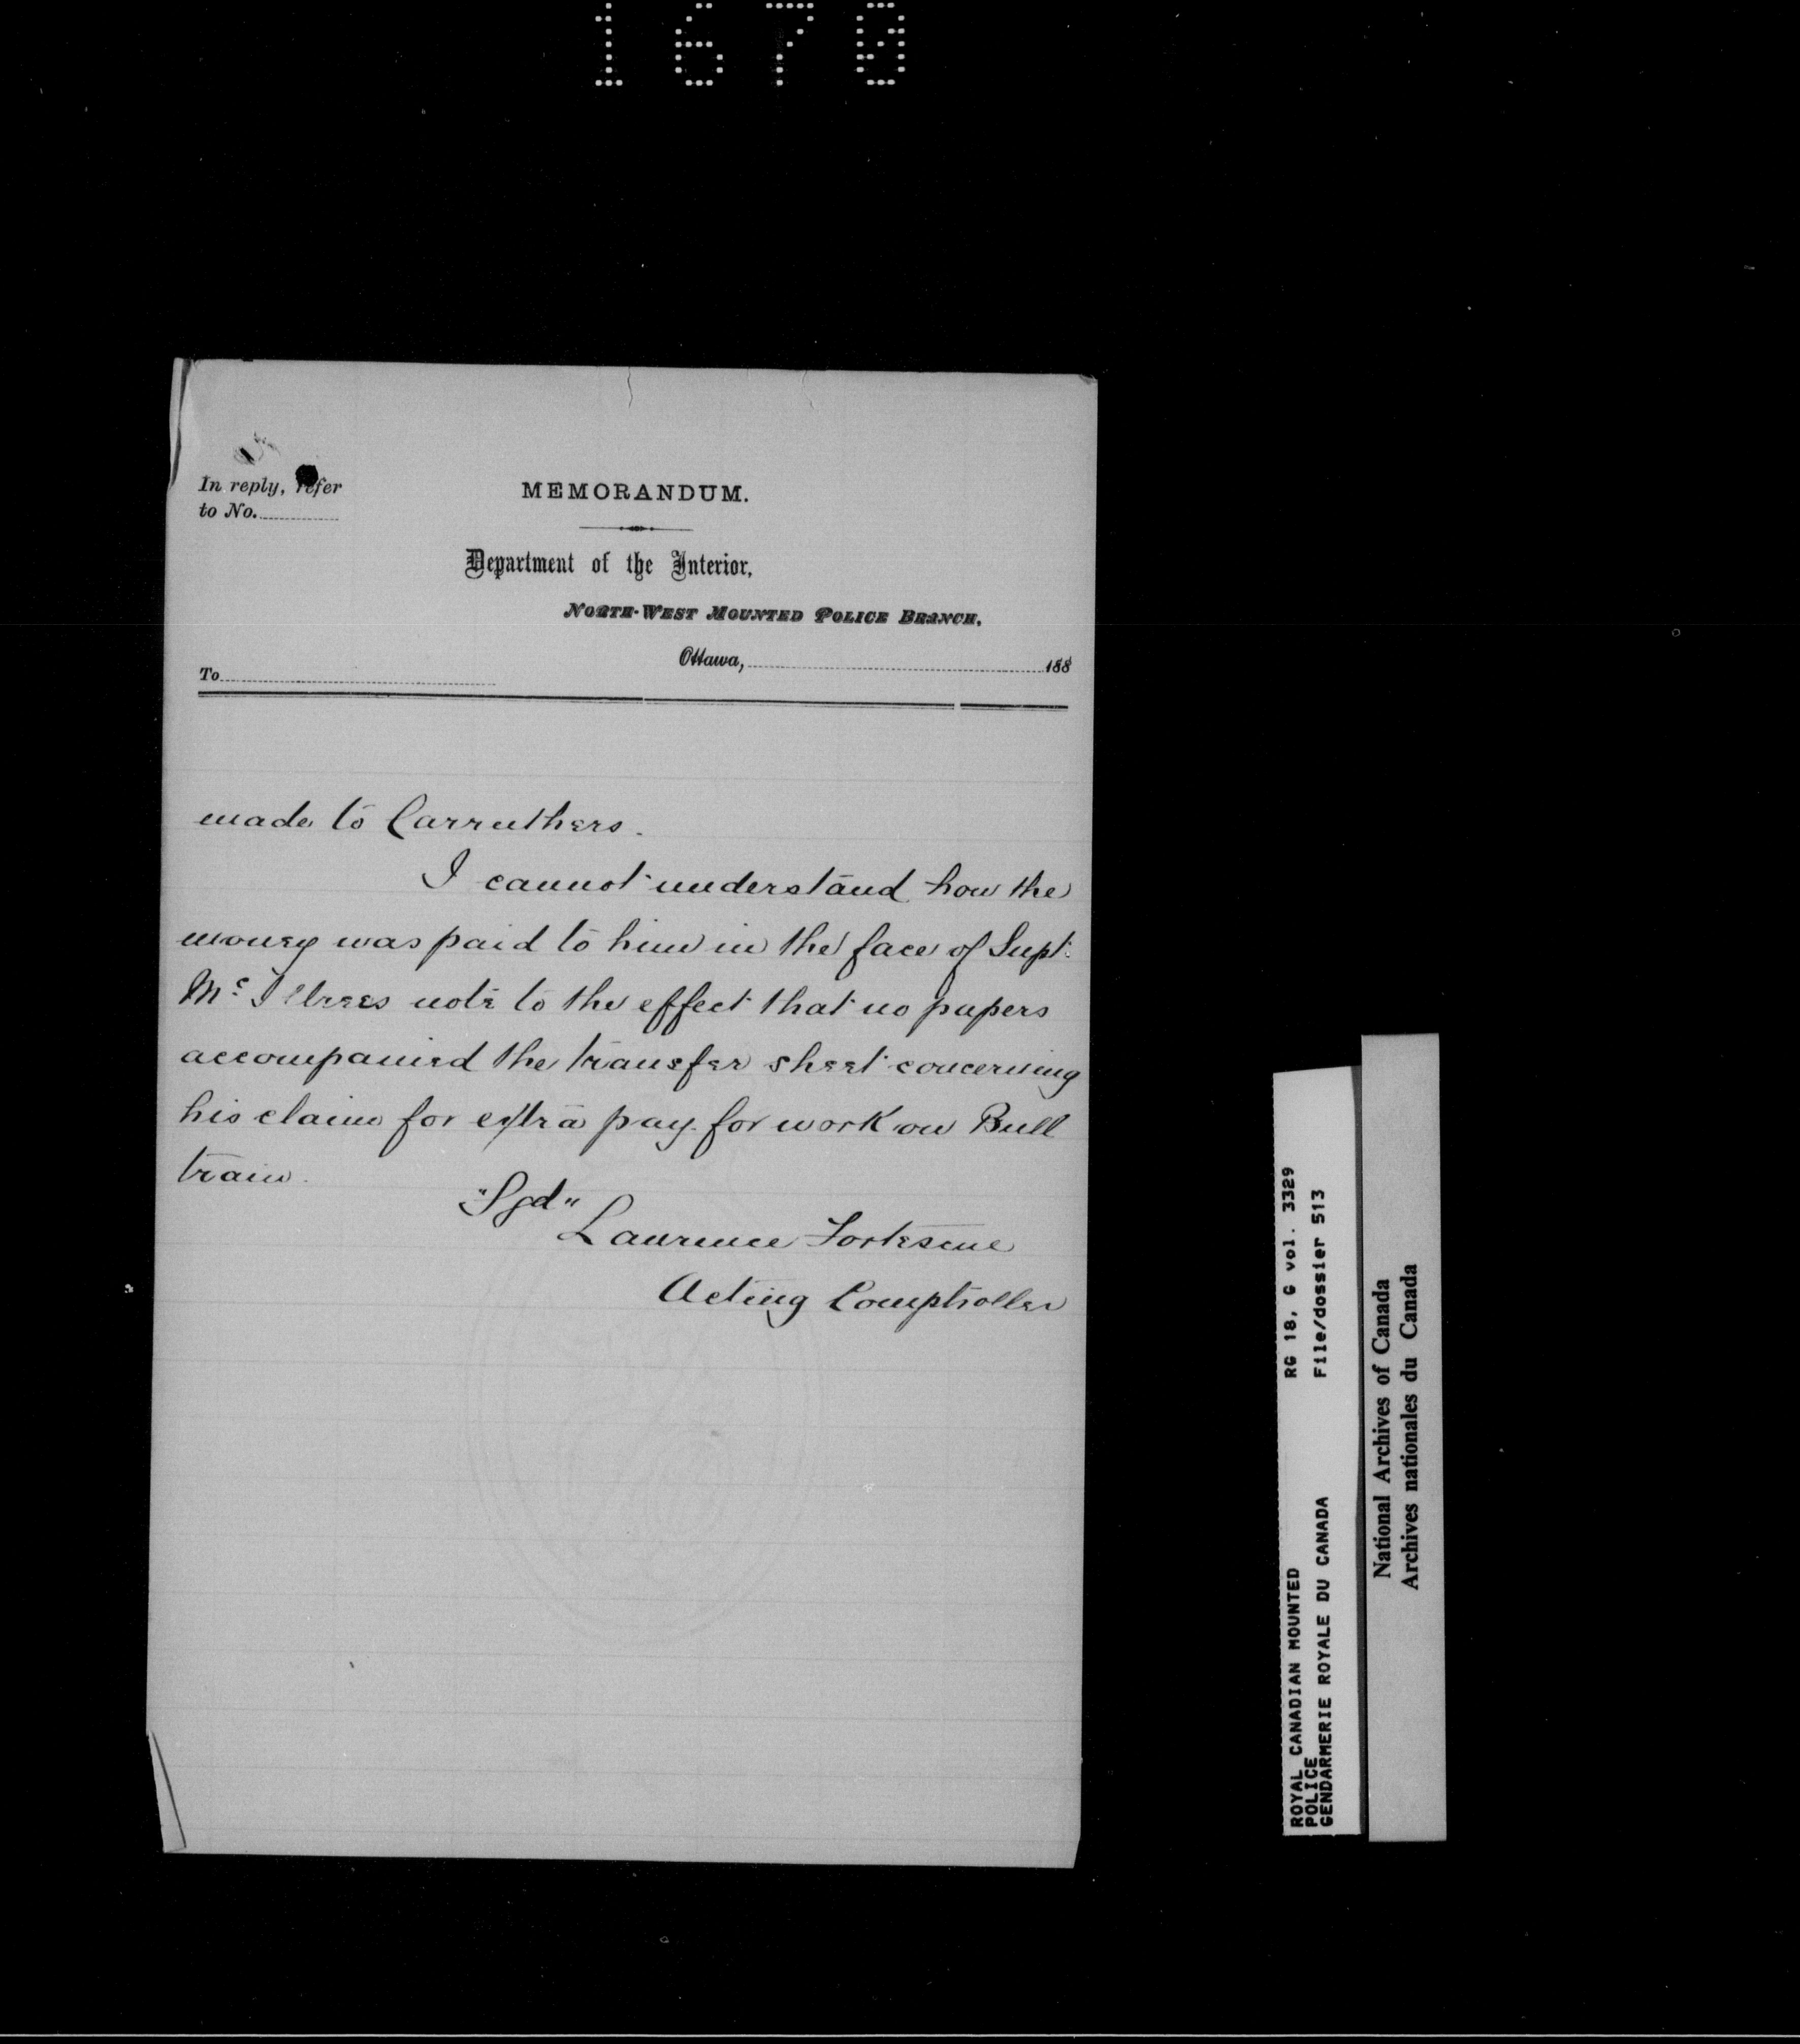 1670
In reply, refer
to No.
MEMORANDUM.
Department of the Interior,
NORTH-WEST MOUNTED POLICE BRANCH.
Ottawa, 188
To
made to Carruthers.
I cannot understand how the
money was paid to him in the face of Supt.
Mc Illrees note to the effect that no papers
accompanied the transfer sheet concerning
his claim for extra pay for work on Bull
train.
"Sgd"
Laurence Fortescue
Acting Comptroller
ROYAL CANADIAN MOUNTED
POLICE
GENDARMERIE ROYALE DU CANADA
RG 18, G vol. 3329
File/dossier 513
National Archives of Canada
Archives nationales du Canada